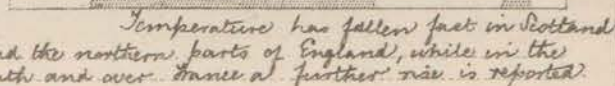 Temperature has fallen fast in Scotland
nd the northern parts of England, while in the
uth and over France a further rise is reported.